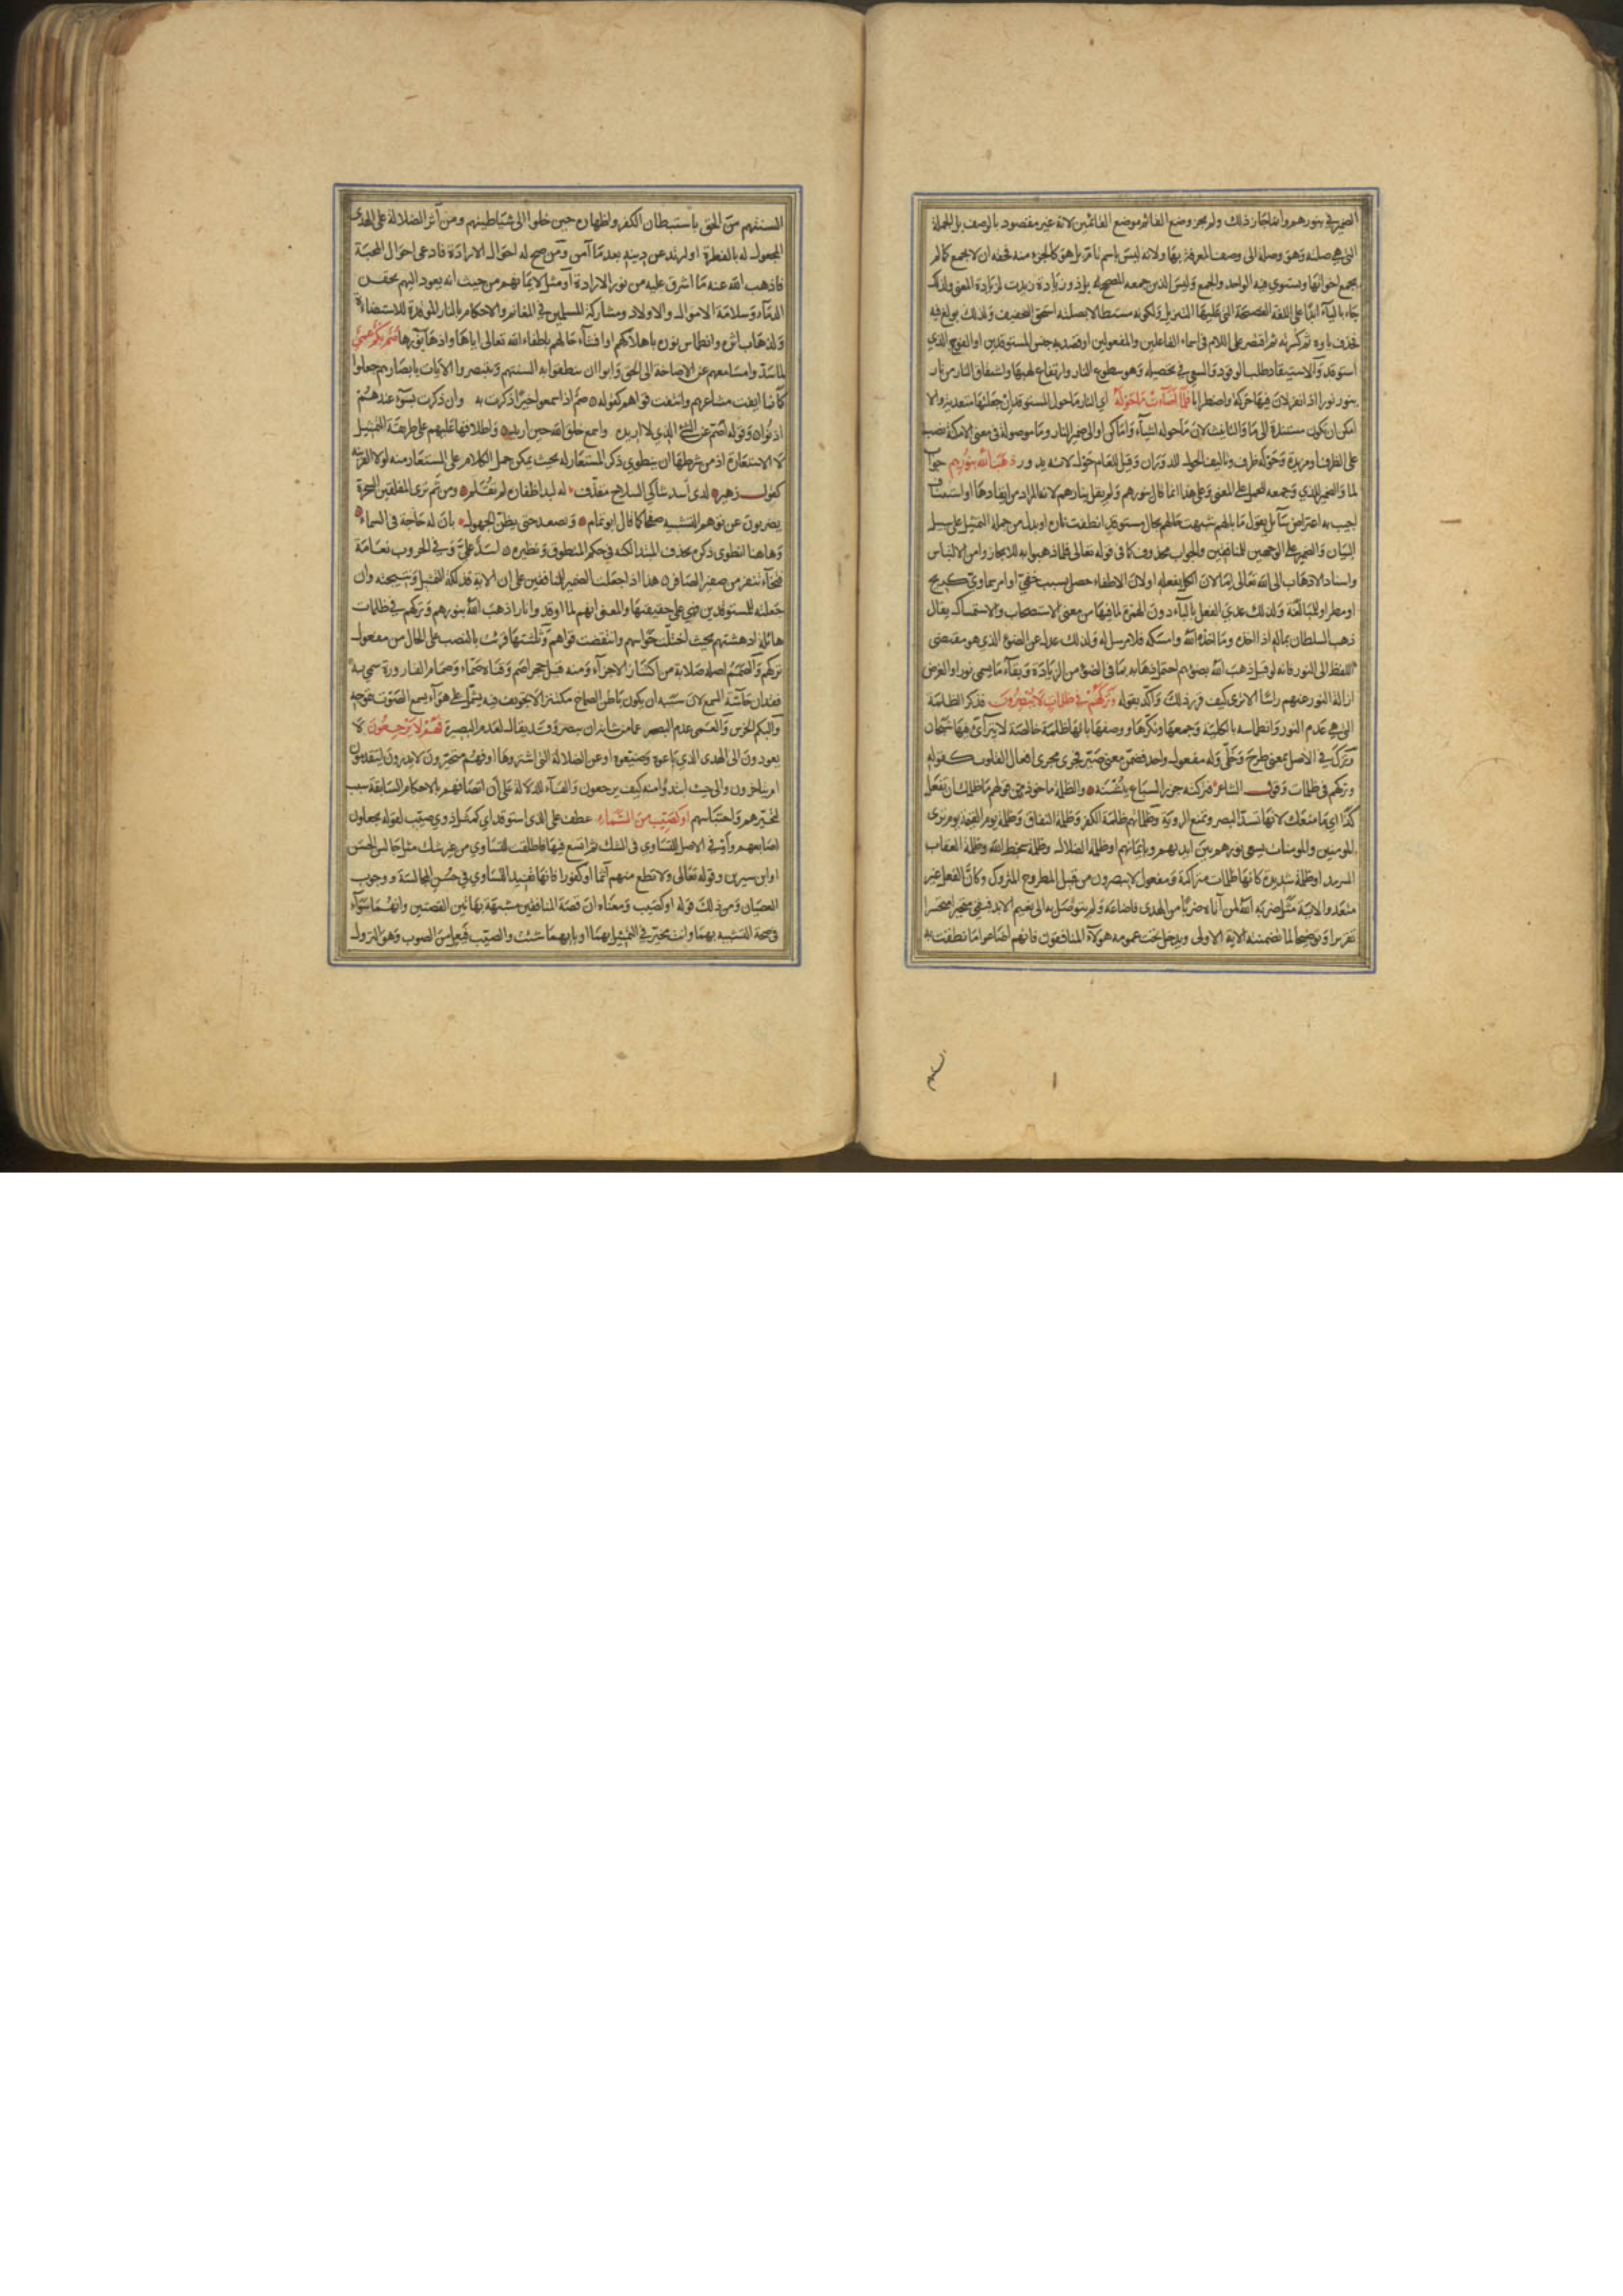 الضمير في بنورهم وانما جاز ذلك ولم يجز وضع القائم موضع القائمين لانه غير مقصود بالوصف بل الجملة
التي هي صلته وهو وصلة الى وصف المعرفة بها ولانه ليس باسم تام بل هو كالجزء منه فحقه ان لا يجمع كما لم
يجمع اخواتها ويستوي فيه الواحد والجمع وليس الذين جمعه المصحح له بل ذو زيادة زيدت لزيادة المعنى ولذلك
جاء بالياء ابدا على اللغة الفصيحة التي عليها التنزيل ولكونه مستطالا بصلته استحق التخفيف ولذلك بولغ فيه
فحذف ياوه ثم كسرته ثم اقتصر على اللام في اسماء الفاعلين والمفعولين او قصد به جنس المستوقدين او الفوج الذي
استوقد والاستيقاد طلب الوقود والسعي في تحصيله وهو سطوع النار وارتفاع لهبها واشتقاق النار من نار
ينور نورا اذا نفر لان فيها حركة واضطرابا فلما اضاءت ما حوله اي النار ما حول المستوقد ان جعلتها متعدية والا
امكن ان تكون مسندة الى ما والتانيث لان ما حوله اشياء واماكن او الى ضمير النار وما موصولة في معنى الامكنة نصب
على الظرف او مزيدة وحوله ظرف وتاليف الحول للدوران وقيل للعام حول لانه يدور ذهب الله بنورهم جواب
لما والضمير للذي وجمعه للحمل على المعنى وعلى هذا انما قال بنورهم ولم يقل بنارهم لانه المراد من ايقادها او استيناف
اجيب به اعتراض سائل يقول ما بالهم شبهت حالهم بحال مستوقد انطفت ناره او بدل من جملة التمثيل على سبيل
البيان والضمير على الوجهين للمنافقين والجواب محذوف كما في قوله تعالى فلما ذهبوا به للايجاز وامن الالتباس
واسناد الاذهاب الى الله تعالى اما لان الكل بفعله او لان الاطفاء حصل بسبب خفي او امر سماوي كريح
او مطر او للمبالغة ولذلك عدي الفعل بالباء دون الهمزة لما فيها من معنى الاستصحاب والاستمساك يقال
ذهب السلطان بماله اذا اخذه وما اخذه الله وامسكه فلا مرسل له ولذلك عدل عن الضوء الذي هو مقتضى
اللفظ الى النور فانه لو قيل ذهب الله بضوئهم احتمل ذهابه بما في الضوء من الزيادة وبقاء ما يسمى نورا والغرض
ازالة النور عنهم راسا الا ترى كيف قرر ذلك واكد بقوله وتركهم في ظلمات لا يبصرون فذكر الظلمة
التي هي عدم النور وانطماسه بالكلية وجمعها ونكرها ووصفها بانها ظلمة خالصة لا يتراءى فيها شبحان
وترك في الاصل بمعنى طرح وخلى وله مفعول واحد فضمن معنى صير فجرى مجرى افعال القلوب كقوله
وتركهم في ظلمات وقول الشاعر فتركته جزر السباع ينشنه والظلمة ماخوذة من قولهم ما ظلمك ان تفعل
كذا اي ما منعك لانها تسد البصر وتمنع الروية وظلماتهم ظلمة الكفر وظلمة النفاق وظلمة يوم القيمة يوم ترى
المومنين والمومنات يسعى نورهم بين ايديهم وبايمانهم او ظلمة الضلال وظلمة سخط الله وظلمة العقاب
السرمد او ظلمة شديدة كانها ظلمات متراكمة ومفعول لا يبصرون من قبيل المطروح المتروك وكان الفعل غير
متعد والاية مثل ضربه الله لمن آتاه ضربا من الهدى فاضاعه ولم يتوصل به الى نعيم الابد فبقي متحيرا متحسرا
تقريرا وتوضيحا لما تضمنته الاية الاولى ويدخل تحت عمومه هولاء المنافقون فانهم اضاعوا ما نطقت به
السنتهم من الحق باستبطان الكفر واظهاره حين خلوا الى شياطينهم ومن آثر الضلالة على الهدى
المجعول له بالفطرة او ارتد عن دينه بعد ما آمن ومن صح له احوال الارادة فادعى احوال المحبة
فاذهب الله عنه ما اشرق عليه من نور الارادة او مثل لايمانهم من حيث انه يعود اليهم بحقن
الدماء وسلامة الاموال والاولاد ومشاركة المسلمين في المغانم والاحكام بالنار الموقدة للاستضاءة
ولذهاب اثره وانطماس نوره باهلاكهم او افشاء حالهم باطفاء الله تعالى اياها واذهاب نورها صم بكم عمي
لما سدوا مسامعهم عن الاصاخة الى الحق وابوا ان ينطقوا به السنتهم ويتبصروا الايات بابصارهم جعلوا
كانما ايفت مشاعرهم وانتفت قواهم كقوله صم اذا سمعوا خيرا ذكرت به وان ذكرت بسوء عندهم
اذنوا وقوله اصم عن الشيء الذي لا اريده واسمع خلق الله حين اريد واطلاقها عليهم على طريقة التمثيل
لا الاستعارة اذ من شرطها ان ينطوي ذكر المستعار له بحيث يمكن حمل الكلام على المستعار منه لولا القرينة
كقول زهير لدى اسد شاكي السلاح مقذف له لبد اظفاره لم تقلم ومن ثم ترى المفلقين السحرة
يضربون عن توهم التشبيه صفحا كما قال ابو تمام ويصعد حتى يظن الجهول بان له حاجة في السماء
وهاهنا انطوى ذكره بحذف المبتدا لكنه في حكم المنطوق ونظيره اسد علي وفي الحروب نعامة
فتخاء تنفر من صفير الصافر هذا اذا جعلت الضمير للمنافقين على ان الاية فذلكة التمثيل ونتيجته وان
جعلته للمستوقدين فهي على حقيقتها والمعنى انهم لما اوقدوا نارا ذهب الله بنورهم وتركهم في ظلمات
هائلة ادهشتهم بحيث اختلت حواسهم وانتقضت قواهم وثلثتها قرئت بالنصب على الحال من مفعول
تركهم والصمم اصله صلابة من اكتناز الاجزاء ومنه قيل حجر اصم وقناة صماء وصمام القارورة سمي به
فقدان حاسة السمع لان سببه ان يكون باطن الصماخ مكتنزا لا تجويف فيه يشتمل على هواء يسمع الصوت بتموجه
والبكم الخرس والعمى عدم البصر عما من شانه ان يبصر وقد يقال لعدم البصيرة فهم لا يرجعون لا
يعودون الى الهدى الذي باعوه وضيعوه او عن الضلالة التي اشتروها او فهم متحيرون لا يدرون ايتقدمون
ام يتاخرون والى حيث ابتدوا منه كيف يرجعون والفاء للدلالة على ان اتصافهم بالاحكام السابقة سبب
لتحيرهم واحتباسهم او كصيب من السماء عطف على الذي استوقد اي كمثل ذوي صيب لقوله يجعلون
اصابعهم وأو في الاصل للتساوي في الشك ثم اتسع فيها فاطلقت للتساوي من غير شك مثل جالس الحسن
او ابن سيرين وقوله تعالى ولا تطع منهم آثما او كفورا فانها تفيد التساوي في حسن المجالسة ووجوب
العصيان ومن ذلك قوله او كصيب ومعناه ان قصة المنافقين مشبهة بهاتين القصتين وانهما سواء
في صحة التشبيه بهما وانت مخير في التمثيل بهما او بايهما شئت والصيب فيعل من الصوب وهو النزول